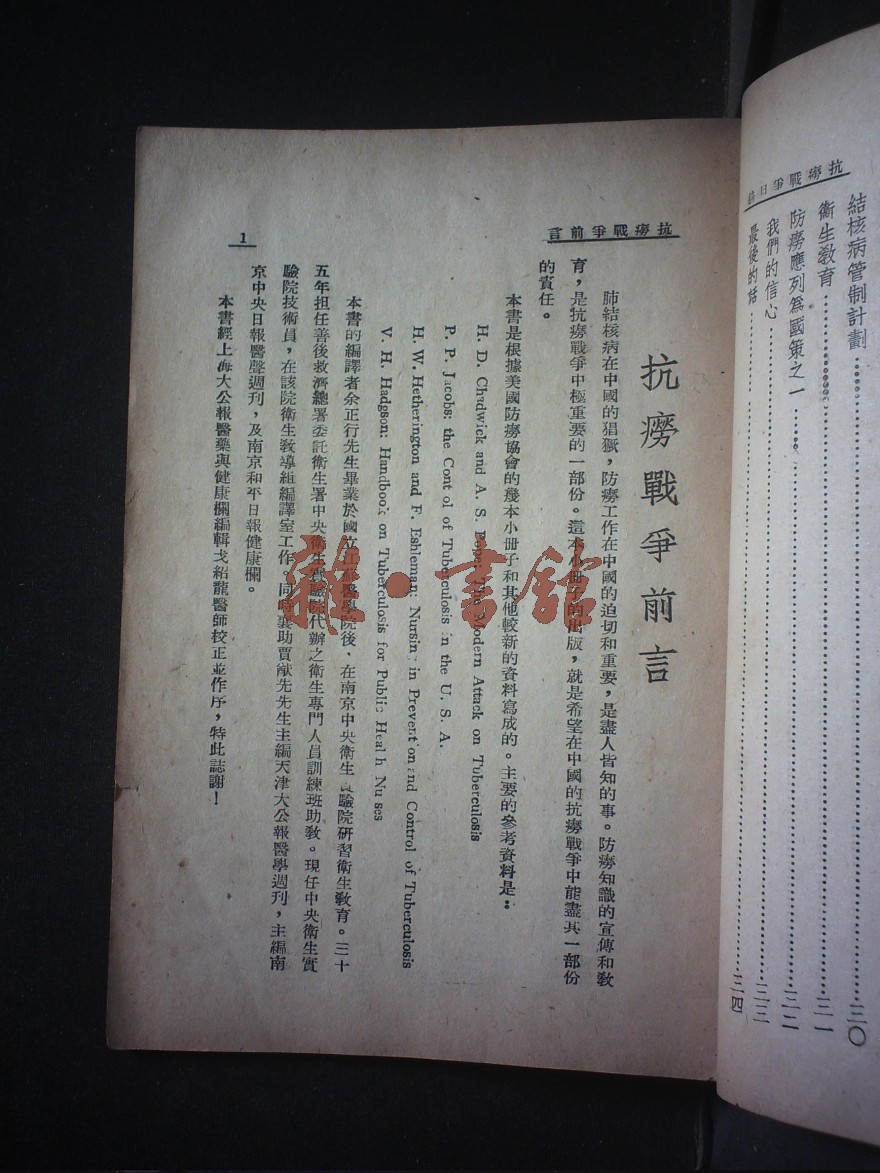 抗癆戰爭目錄
結核病管制計劃……三〇
衞生教育……三一
防癆應列爲國策之一……三二
我們的信心……三三
最後的話……三四
抗癆戰爭前言
抗癆戰爭前言
肺結核病在中國的猖獗，防癆工作在中國的迫切和重要，是盡人皆知的事。防癆知識的宣傳和教
育，是抗癆戰爭中極重要的一部份。這本小冊子的出版，就是希望在中國的抗癆戰爭中能盡其一部份
的責任。
本書是根據美國防癆協會的幾本小冊子和其他較新的資料寫成的。主要的參考資料是：
H. D. Chadwick and A. S. Pope: The Modern Attack on Tuberculosis
P. P. Jacobs: the Control of Tuberculosis in the U. S. A.
H. W. Hetherington and F. Eshleman: Nursing in Prevention and Control of Tuberculosis
V. H. Hadgson: Handbook on Tuberculosis for Public Health Nurses
本書的編譯者余正行先生畢業於國立江蘇醫學院後，在南京中央衞生實驗院研習衞生教育。三十
五年担任善後救濟總署委託衞生署中央衞生實驗院代辦之衞生專門人員訓練班助教。現任中央衞生實
驗院技術員，在該院衞生教導組編譯室工作。同時襄助賈猷先先生主編天津大公報醫學週刊，主編南
京中央日報醫聲週刊，及南京和平日報健康欄。
本書經上海大公報醫藥與健康欄編輯戈紹龍醫師校正並作序，特此誌謝！
1
雜·書館